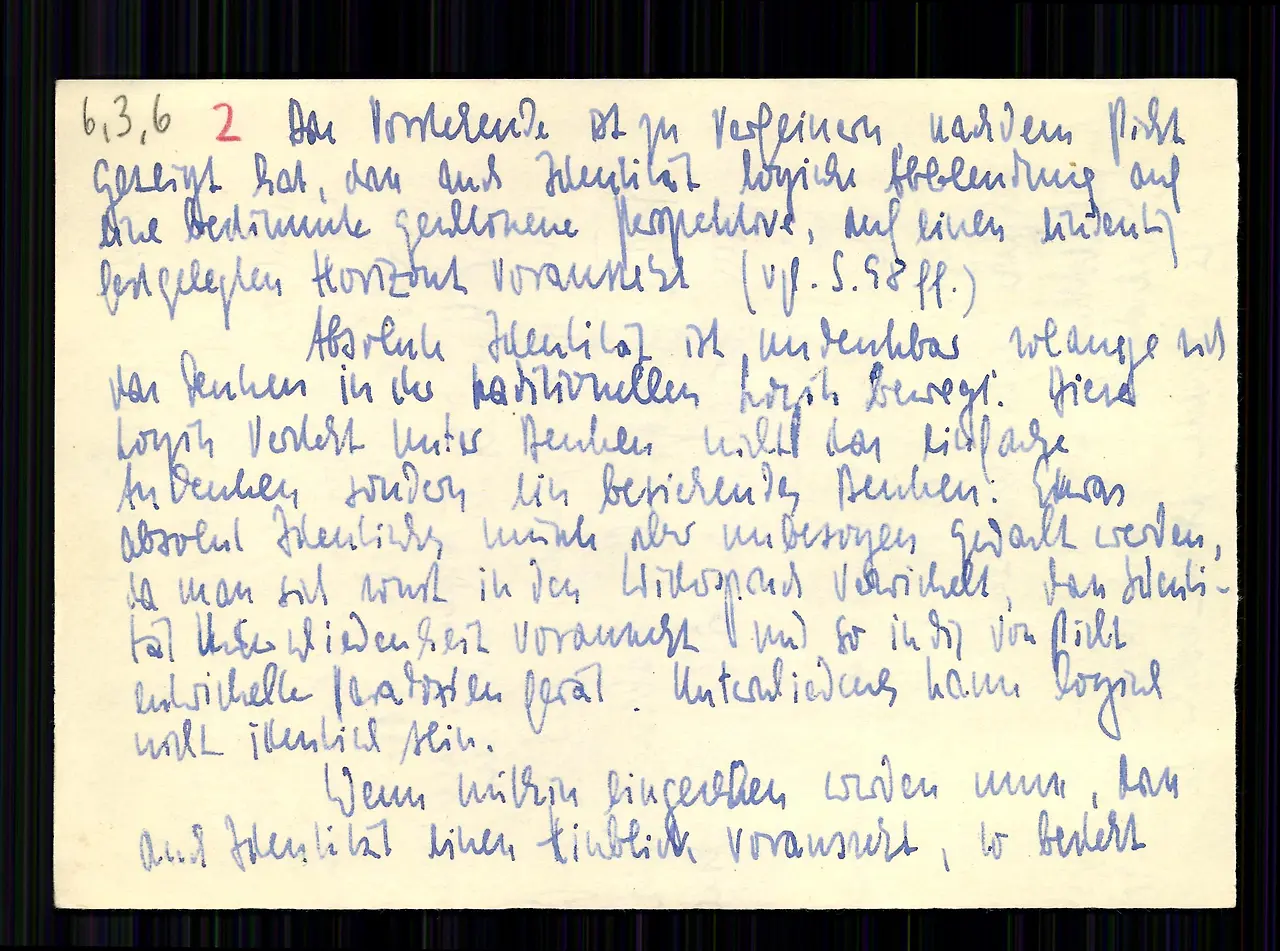 6,3,6 2 Das Vorstehende ist zu verfeinern, nachdem Picht
gezeigt hat, dass auch Identität logische Abblendung auf
eine bestimmte geschlossene Perspektive, auf einen eindeutig
festgelegten Horizont voraussetzt (vgl. S. 98 ff.)
Absolute Identität ist undenkbar solange sich
das Denken in der traditionellen Logik bewegt. Diese
Logik versteht unter Denken nicht das einfache
Andenken sondern ein beziehendes Denken. Etwas
absolut Identisches müsste aber unbezogen gedacht werden,
da man sich sonst in den Widerspruch verwickelt, dass Identi-
tät Unterschiedenheit voraussetzt und so in die von Picht
entwickelte Paradoxien gerät. Unterschiedenes kann logisch
nicht identisch sein.
Wenn mithin eingesehen werden muss, dass
auch Identität einen Hinblick voraussetzt, so besteht